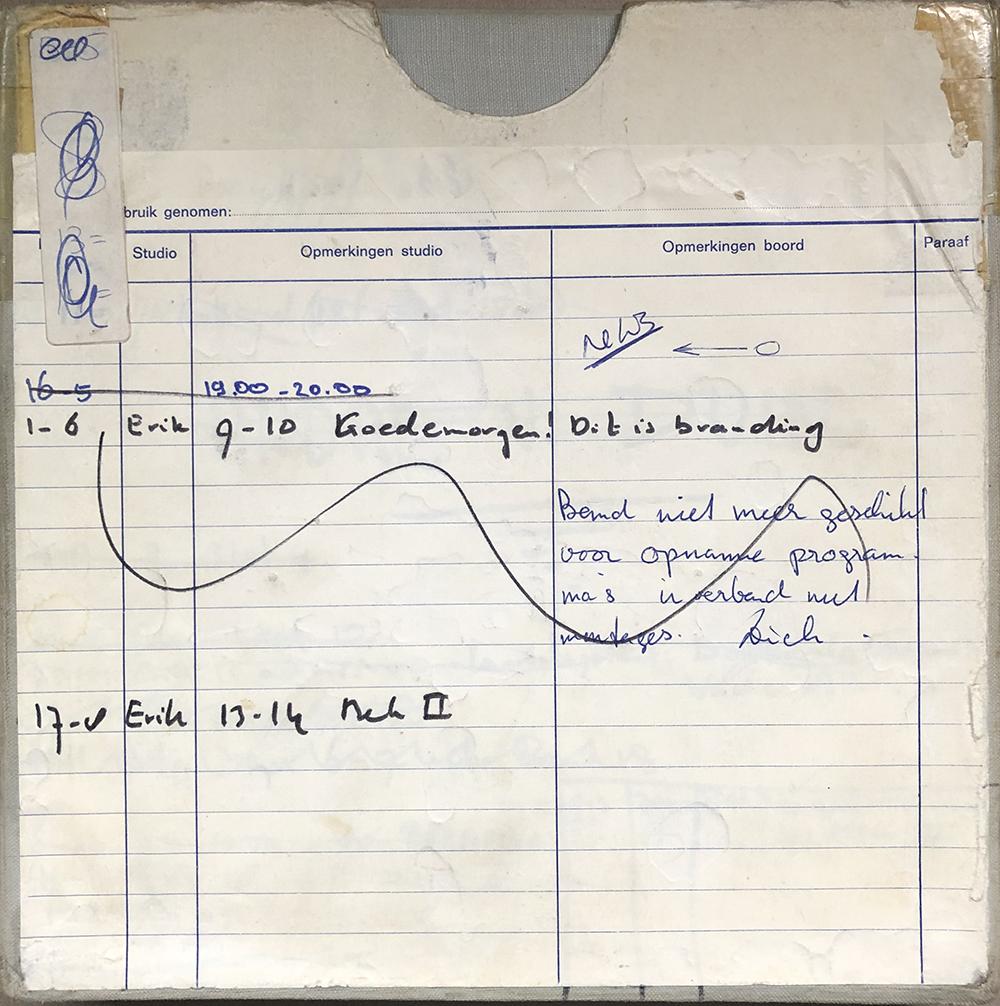 bruik genomen:
Studio Opmerkingen studio Opmerkingen boord Paraaf
news
16-5 19.00-20.00
1-6 Erik 9-10 Goedemorgen! Dit is branding
Band niet meer geschikt
voor opname program-
ma's in verband met
montages.
17-8 Erik 13-14 II